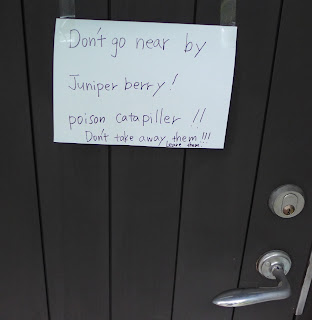 Don't go near by
Juniper berry!
poison catapiller !!
Don't take away them!!!
leave them